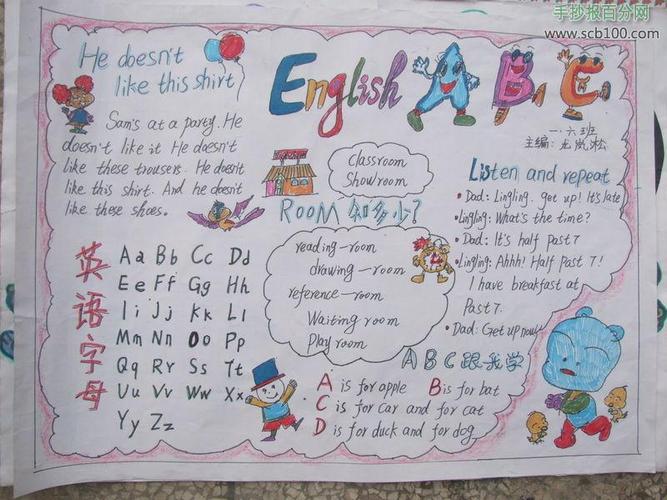 手抄报百分网
www.scb100.com
He doesn't
like this shirt
Sam's at a party. He
doesn't like it He doesn't
like these trousers. He doesn't
like this shirt. And he doesn't
like these shoes.
English A B C
一.六班
主编:
Classroom
Showroom
ROOM 知多少?
reading-room
drawing-room
reference-room
Waiting room
Play room
Listen and repeat
• Dad: Lingling. get up! It's late
• Lingling: What's the time?
• Dad: It's half past 7
• Lingling: Ahhh! Half past 7!
I have breakfast at
Past 7.
• Dad: Get up now
英语字母
Aa Bb Cc Dd
Ee Ff Gg Hh
Ii Jj Kk Ll
Mm Nn Oo Pp
Qq Rr Ss Tt
Uu Vv Ww Xx
Yy Zz
ABC跟我学
A is for apple B is for bat
C is for car and for cat
D is for duck and for dog